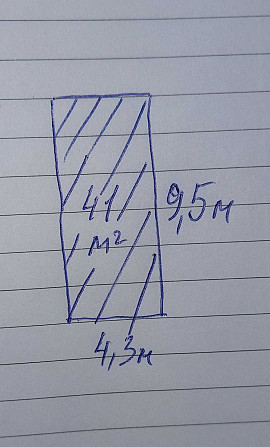 41
м²
9,5м
4,3м